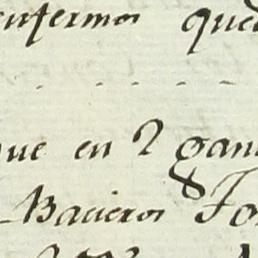 enfermos que
que en 2 gan
Bacieros Jo